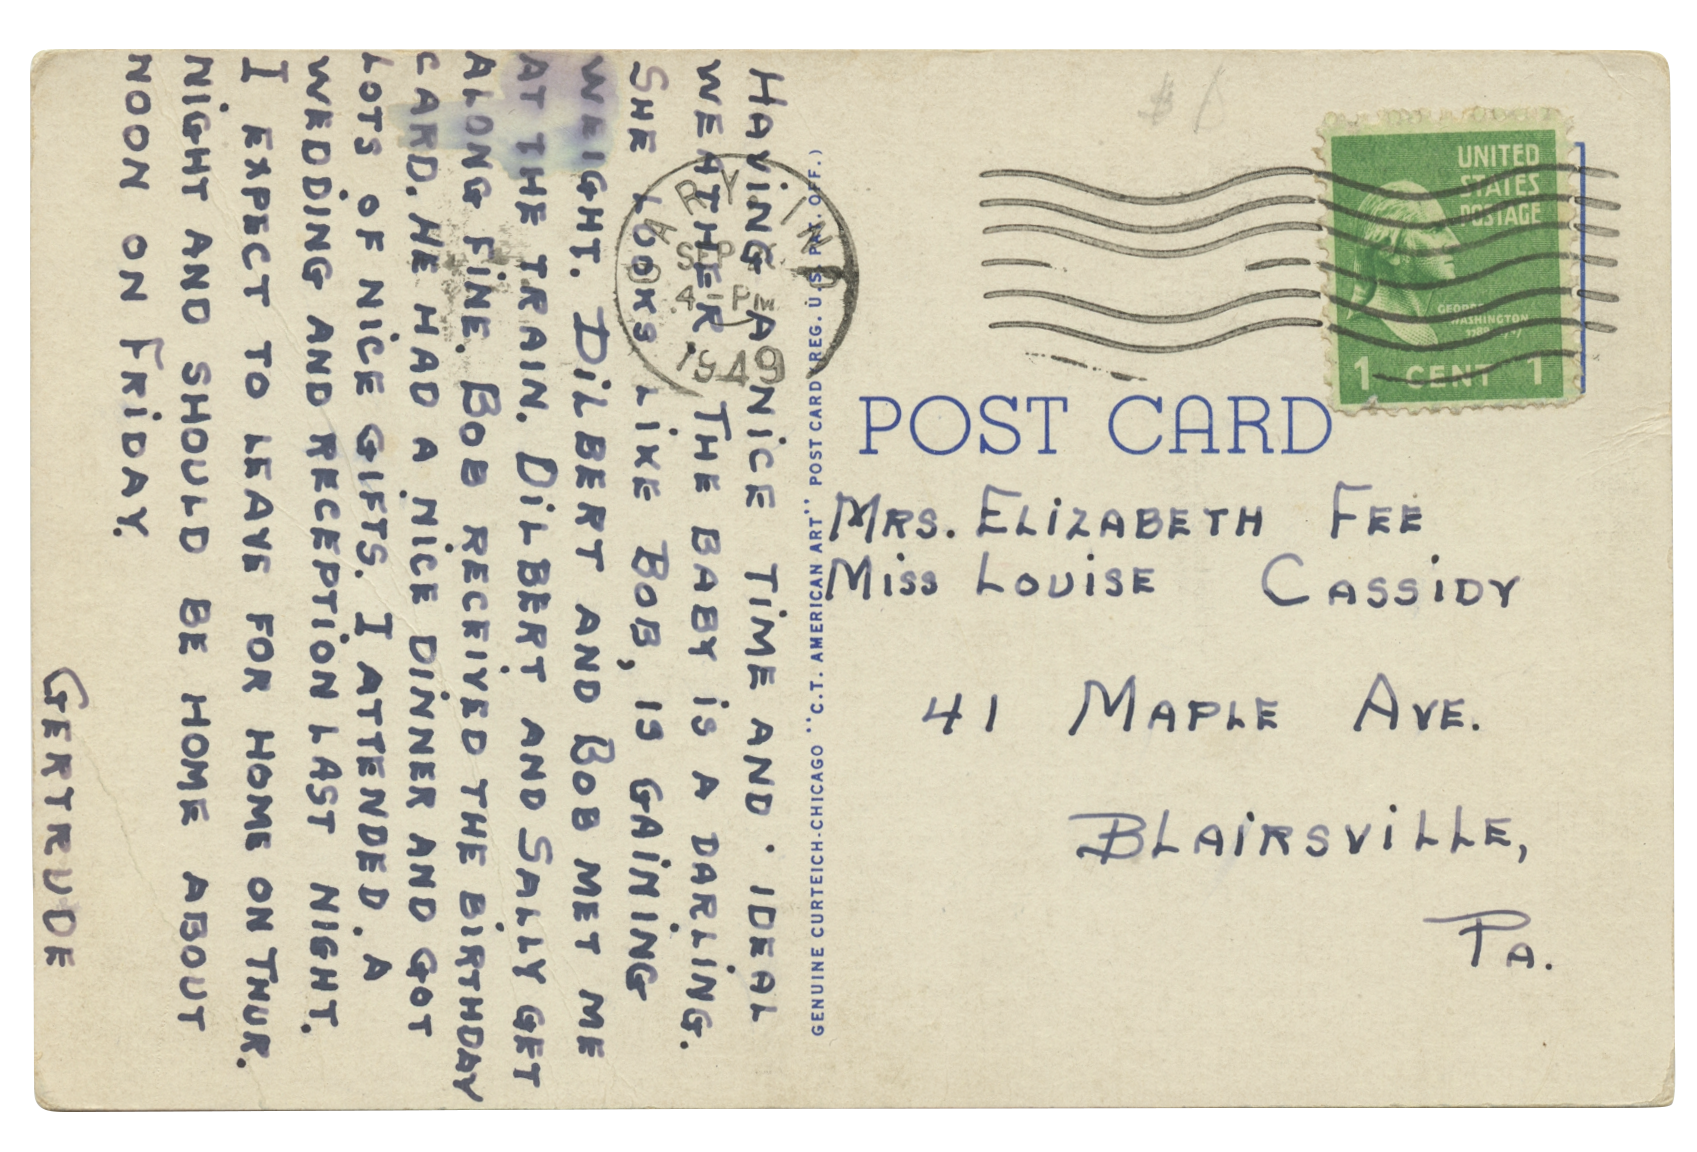 HAVING A NICE TIME AND IDEAL
WEATHER. THE BABY IS A DARLING.
SHE LOOKS LIKE BOB, IS GAINING
WEIGHT. DILBERT AND BOB MET ME
AT THE TRAIN. DILBERT AND SALLY GET
ALONG FINE. BOB RECEIVED THE BIRTHDAY
CARD. HE HAD A NICE DINNER AND GOT
LOTS OF NICE GIFTS. I ATTENDED A
WEDDING AND RECEPTION LAST NIGHT.
I EXPECT TO LEAVE FOR HOME ON THUR.
NIGHT AND SHOULD BE HOME ABOUT
NOON ON FRIDAY.
GERTRUDE
GENUINE CURTEICH-CHICAGO "C.T. AMERICAN ART" POST CARD (REG. U.S. PAT. OFF.)
ARY IND
SEP
4 - PM
1949
UNITED
STATES
POSTAGE
GEORGE
WASHINGTON
1 CENT 1
POST CARD
MRS. ELIZABETH FEE
MISS LOUISE CASSIDY
41 MAPLE AVE.
BLAIRSVILLE,
PA.